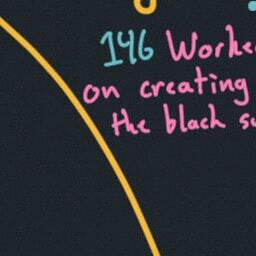 146 Worke
on creating
the black su